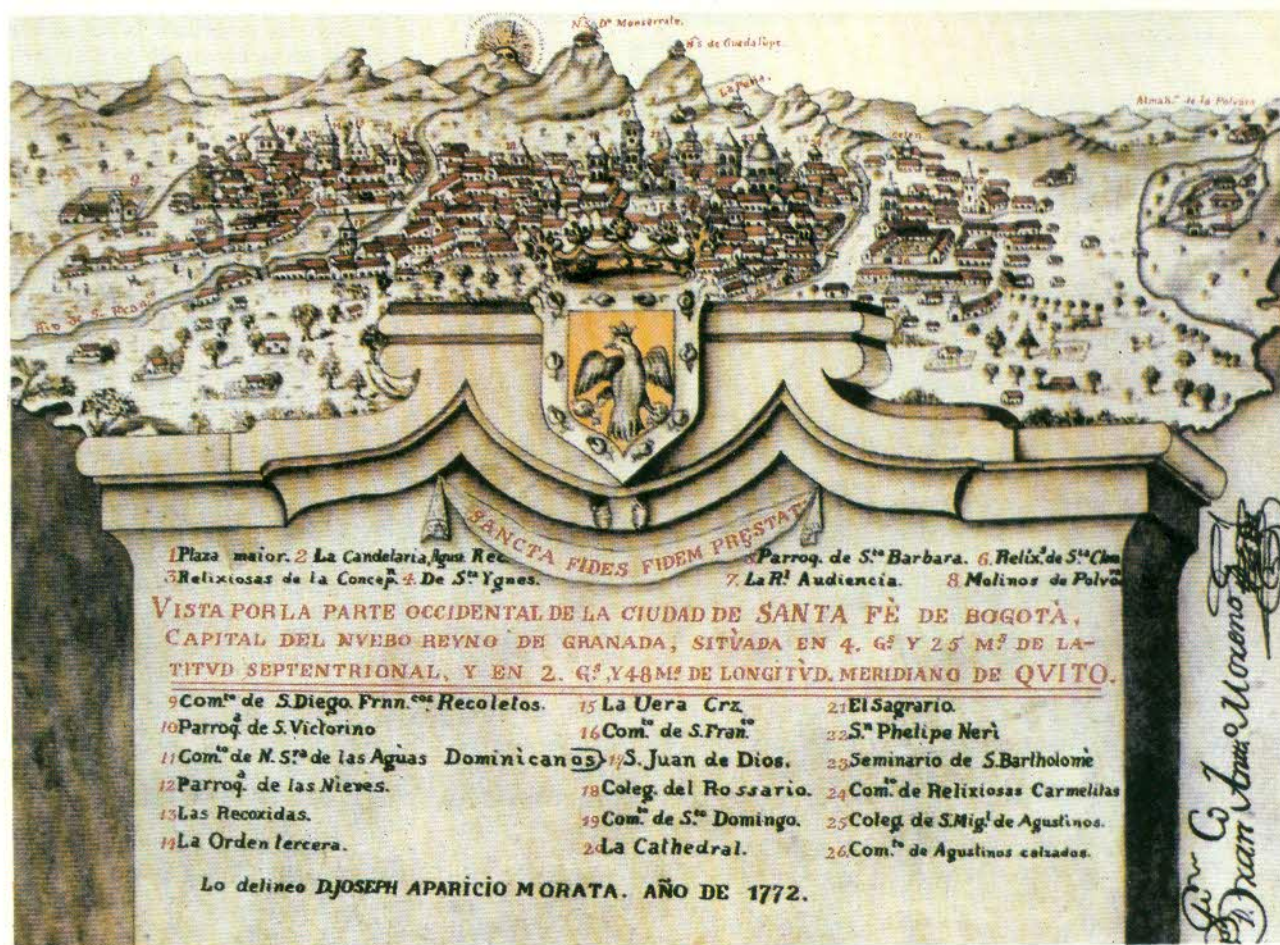 N.S. D.ª Monserrate.
N.S de Guadalupe.
La Peña.
Almah.n de la Polvora
Belen
9
10
Rio de S.n
SANCTA FIDES FIDEM PRESTAT
1 Plaza maior. 2 La Candelaria, Agust. Rec
5 Parroq. de S.ta Barbara. 6. Relix.s de S.ta Clara
3. Relixiosas de la Concep.n 4. De S.ta Ygnes.
7. La R.l Audiencia. 8. Molinos de Polvora
VISTA POR LA PARTE OCCIDENTAL DE LA CIUDAD DE SANTA FÈ DE BOGOTÀ,
CAPITAL DEL NVEBO REYNO DE GRANADA, SITÙADA EN 4. G.s Y 25 M.s DE LA-
TITVD SEPTENTRIONAL, Y EN 2. G.s, Y 48 M.s DE LONGITÙD. MERIDIANO DE QVITO.
9 Com.to de S. Diego. Frnn.cos Recoletos.
10 Parroq.a de S. Victorino
11 Com.to de N. S.ra de las Agùas Dominicanos
12 Parroq.a de las Nieves.
13 Las Recoxidas.
14 La Orden tercera.
15 La Uera Crz
16 Com.to de S. Fran.co
17 S. Juan de Dios.
18 Coleg. del Rossario.
19 Com.to de S.to Domingo.
20 La Cathedral.
21 El Sagrario.
22 S.n Phelipe Nerì
23 Seminario de S. Bartholomè
24 Com.to de Relixiosas Carmelitas
25 Coleg. de S. Mig.l de Agustinos.
26. Com.to de Agustinos calzados.
Lo delineo D. JOSEPH APARICIO MORATA. AÑO DE 1772.
Juan Moreno